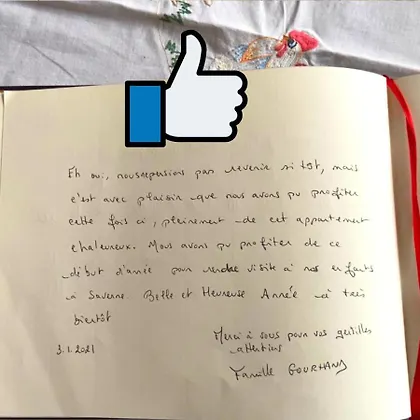 Eh oui, nous repensions pas revenir si tôt, mais
c'est avec plaisir que nous avons pu profiter
cette fois ci, pleinement de cet appartement
chaleureux. Nous avons pu profiter de ce
début d'année pour rendre visite à nos enfants
à Saverne. Belle et Heureuse Année à très
bientôt
Merci à vous pour vos gentilles
attentions
3.1.2021
Famille GOURHAND